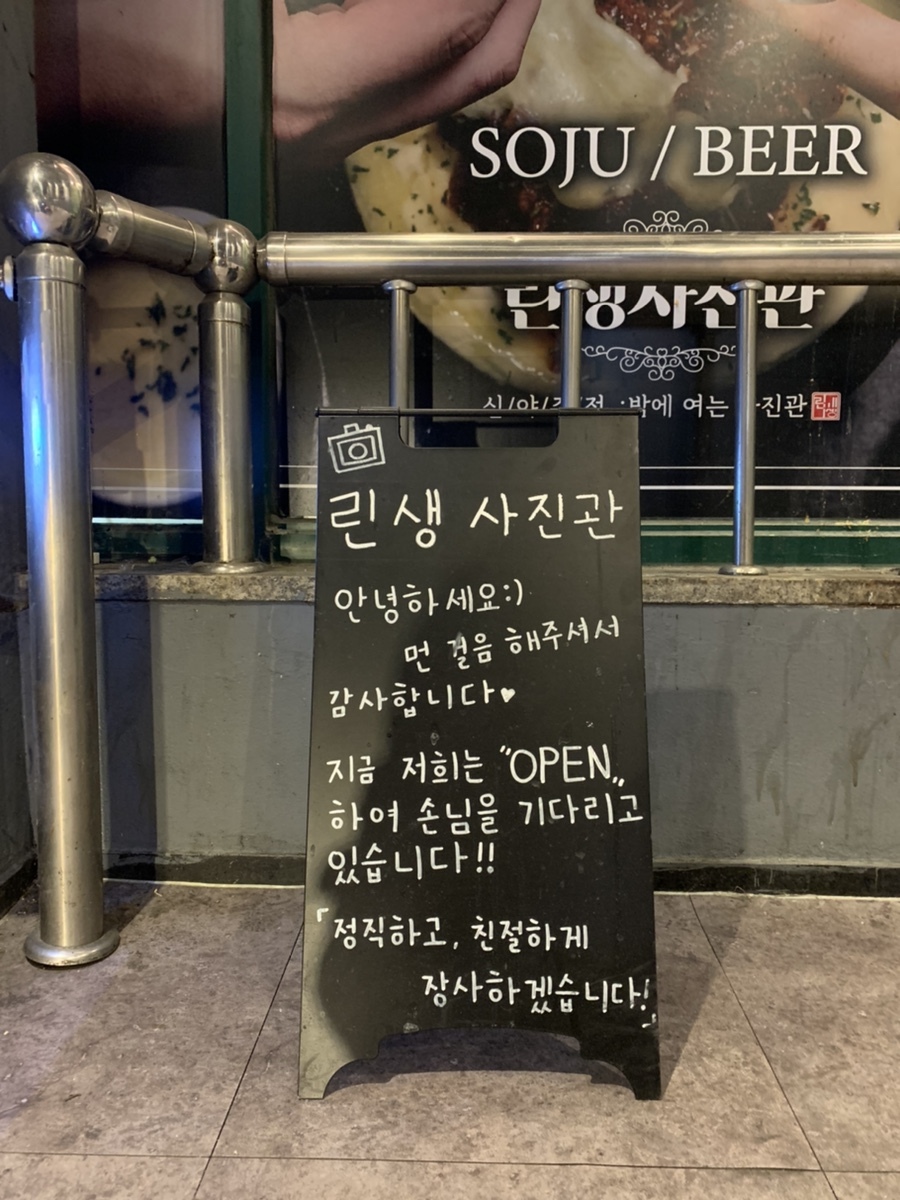 SOJU / BEER
린생사진관
밖에 여는 진관
린생 사진관
안녕하세요:)
먼 걸음 해주셔서
감사합니다♥
지금 저희는 "OPEN„
하여 손님을 기다리고
있습니다!!
「정직하고, 친절하게
장사하겠습니다!」